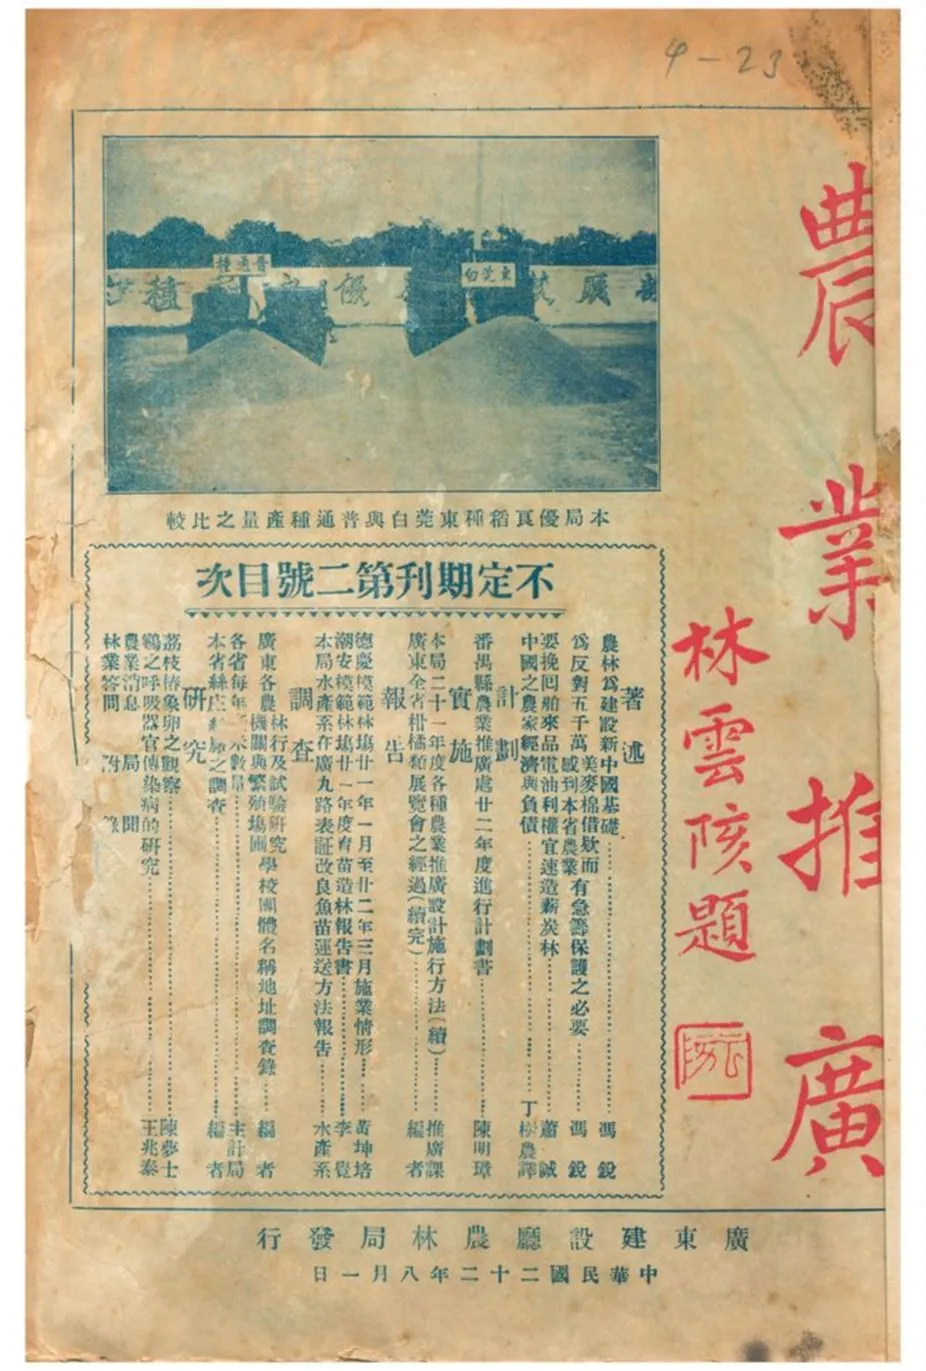 4-23
農業推廣
林雲陔題
普通種
東莞白
本局優良稻種東莞白與普通種產量之比較
不定期刊第二號目次
著述
農林為建設新中國基礎 馮銳
為反對五千萬美麥棉借欵而感到本省農業有急籌保護之必要 馮銳
要挽回舶來品電油利權宜速造薪炭林 蕭誠
中國之農家經濟與負債 丁 農譯
計劃
番禺縣農業推廣處廿二年度進行計劃書 陳明璋
實施
本局二十一年度各種農業推廣設計施行方法(續) 推廣課
廣東全省柑橘類展覽會之經過(續完) 編者
報告
德慶模範林塲廿一年一月至廿二年三月施業情形 黃坤培
潮安模範林塲廿一年度育苗造林報告書 李覺
本局水產系在廣九路表証改良魚苗運送方法報告 水產系
調查
廣東各農林行及試驗研究機關與繁殖塲圃學校團體名稱地址調查錄 編者
各省每年 米數量 主計局
本省絲庄 之調查 編者
研究
荔枝椿象卵之觀察 陳夢士
鷄之呼吸器官傳染病的研究 王兆泰
附錄
農業消息 局聞
林業答問
廣東建設廳農林局發行
中華民國二十二年八月一日